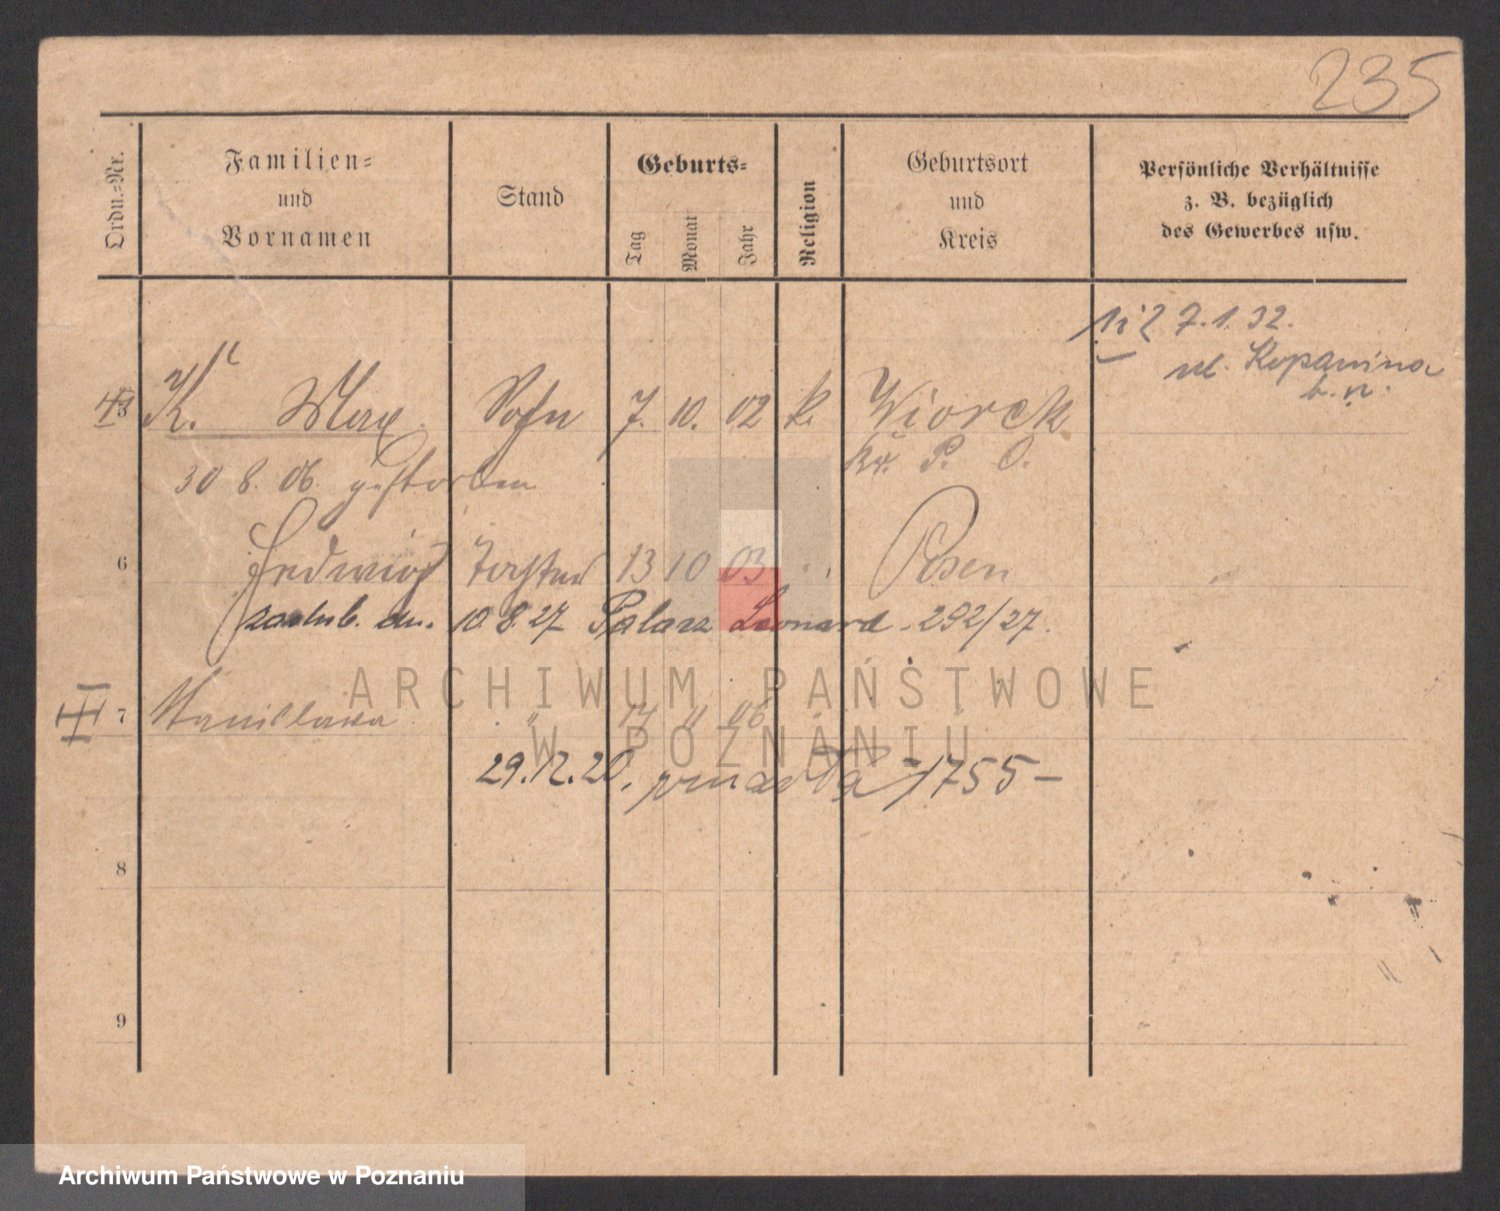 235
Ordn.-Nr.
Familien-
und
Vornamen
Stand
Geburts-
Tag
Monat
Jahr
Religion
Geburtsort
und
Kreis
Persönliche Verhältnisse
z. B. bezüglich
des Gewerbes usw.
1 i 2 7.1.32.
ul. Kopanina
b. n.
5 K. Max Sohn 7. 10. 02 k. Wiorek
Kr. P. O.
30 8. 06. gestorben
6 Hedwig Tochter 13 10 03 " Posen
zaślub. dn. 10 8 27 Palacz Leonard 292/27.
ARCHIWUM PAŃSTWOWE
W POZNANIU
III 7 Stanislawa " 17 " 06 " "
29.12.20. zmarła 1755 –
8
9
Archiwum Państwowe w Poznaniu